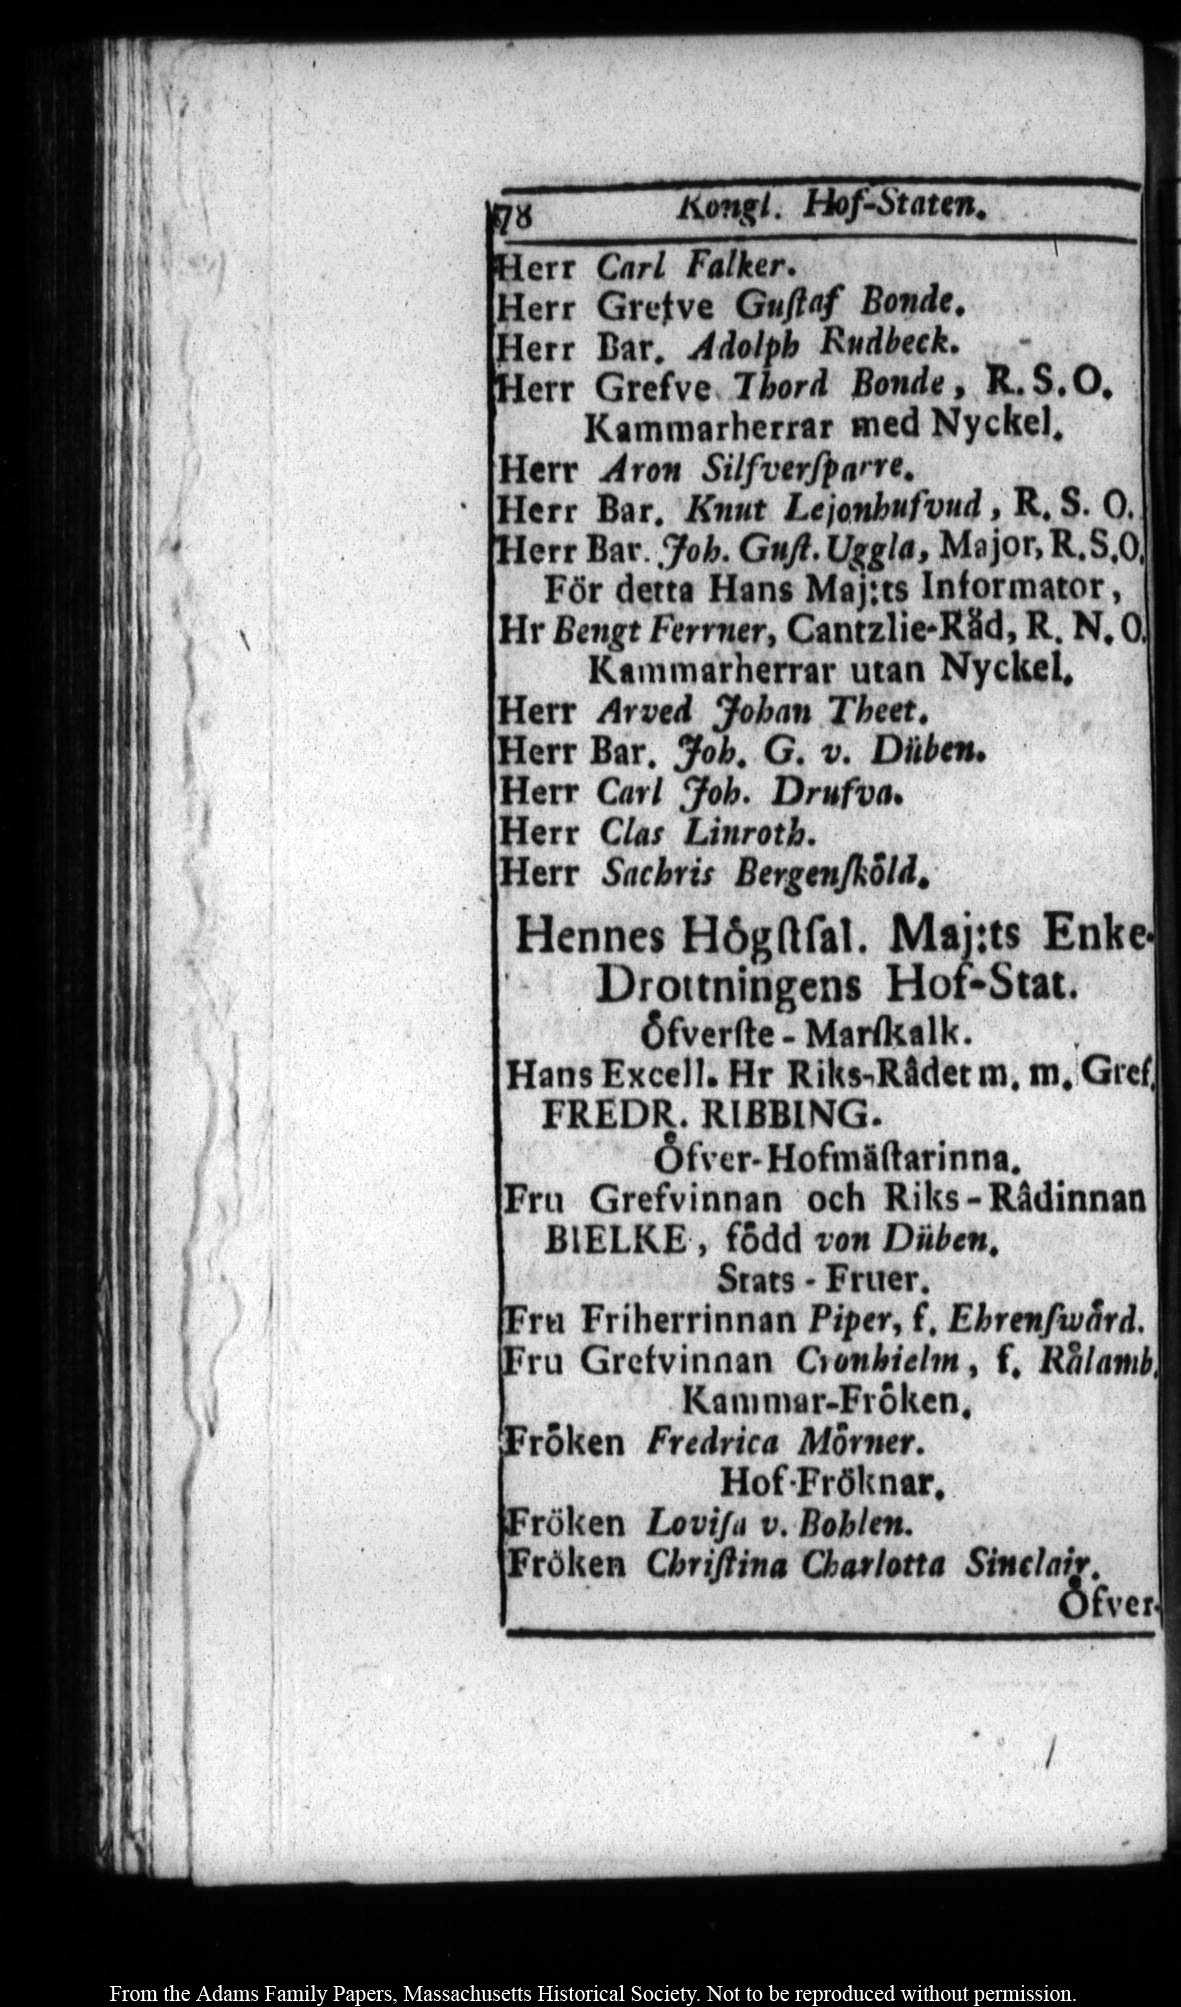 78 Kongl. Hof-Staten.
Herr Carl Falker.
Herr Grefve Guſtaf Bonde.
Herr Bar. Adolph Rudbeck.
Herr Grefve Thord Bonde, R. S. O.
Kammarherrar med Nyckel.
Herr Aron Silfverſparre.
Herr Bar. Knut Lejonhufvud, R. S. O.
Herr Bar. Joh. Guſt. Uggla, Major, R.S.O.
För detta Hans Maj:ts Informator,
Hr Bengt Ferrner, Cantzlie-Råd, R. N. O.
Kammarherrar utan Nyckel.
Herr Arved Johan Theet.
Herr Bar. Joh. G. v. Düben.
Herr Carl Joh. Drufva.
Herr Clas Linroth.
Herr Sachris Bergenſkôld.
Hennes Hôgſtſal. Maj:ts Enke-
Drottningens Hof-Stat.
Ôfverſte-Marſkalk.
Hans Excell. Hr Riks-Rådet m. m. Gref.
FREDR. RIBBING.
Ôfver-Hofmäſtarinna.
Fru Grefvinnan och Riks-Rådinnan
BIELKE, fôdd von Düben.
Stats-Fruer.
Fru Friherrinnan Piper, f. Ehrenſwård.
Fru Grefvinnan Cronhielm, f. Rålamb.
Kammar-Frôken.
Frôken Fredrica Môrner.
Hof-Fröknar.
Fröken Loviſa v. Bohlen.
Fröken Chriſtina Charlotta Sinclair.
Ôfver-
From the Adams Family Papers, Massachusetts Historical Society. Not to be reproduced without permission.